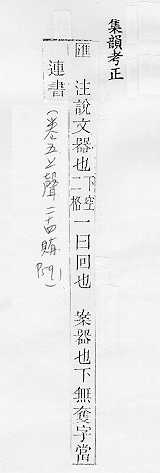 集韻考正
匯　注說文器也下空二格一曰回也　案器也下無奪字當
連書
(卷五上聲二十四賄 P.59)